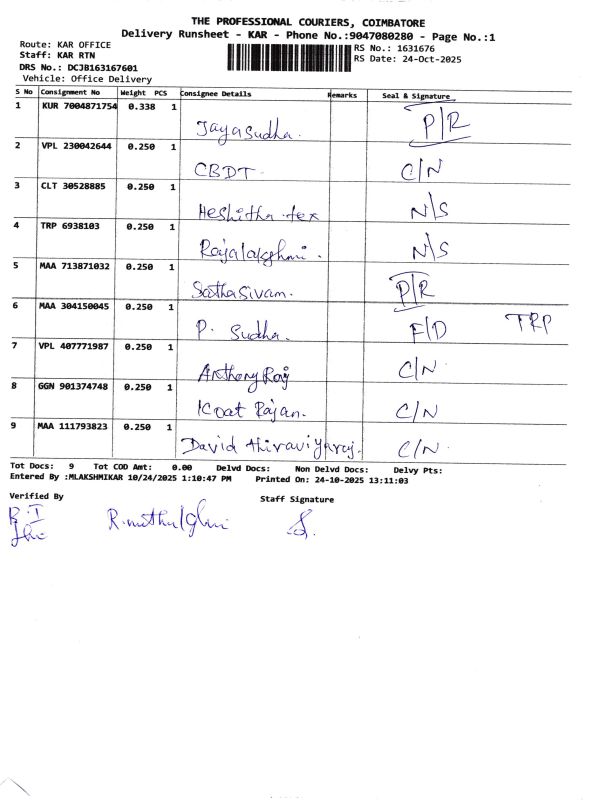 THE PROFESSIONAL COURIERS, COIMBATORE
Delivery Runsheet - KAR - Phone No.:9047080280 - Page No.:1
Route: KAR OFFICE
RS No.: 1631676
Staff: KAR RTN
RS Date: 24-Oct-2025
DRS No.: DCJB163167601
Vehicle: Office Delivery
S No Consignment No Weight PCS Consignee Details Remarks Seal & Signature
1 KUR 7004871754 0.338 1 Jayasudha. P/R
2 VPL 230042644 0.250 1 CBDT. C/N
3 CLT 30528885 0.250 1 Heshitha tex N/S
4 TRP 6938103 0.250 1 Rajalakshmi. N/S
5 MAA 713871032 0.250 1 Sathasivam. P/R
6 MAA 304150045 0.250 1 P. Sudha. F/D TRP
7 VPL 407771987 0.250 1 Anthony Raj C/N
8 GGN 901374748 0.250 1 Rajan. C/N
9 MAA 111793823 0.250 1 David C/N
Tot Docs: 9 Tot COD Amt: 0.00 Delvd Docs: Non Delvd Docs: Delvy Pts:
Entered By :MLAKSHMIKAR 10/24/2025 1:10:47 PM Printed On: 24-10-2025 13:11:03
Verified By
Staff Signature